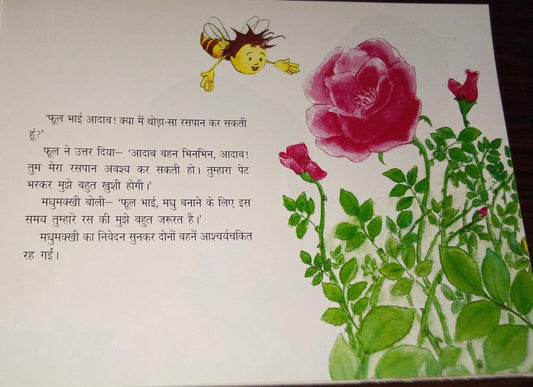 'फूल भाई आदाब! क्या मैं थोड़ा-सा रसपान कर सकती
हूं?'
फूल ने उत्तर दिया– 'आदाब बहन भिनभिन, आदाब!
तुम मेरा रसपान अवश्य कर सकती हो। तुम्हारा पेट
भरकर मुझे बहुत खुशी होगी।'
मधुमक्खी बोली– 'फूल भाई, मधु बनाने के लिए इस
समय तुम्हारे रस की मुझे बहुत जरूरत है।'
मधुमक्खी का निवेदन सुनकर दोनों बहनें आश्चर्यचकित
रह गईं।